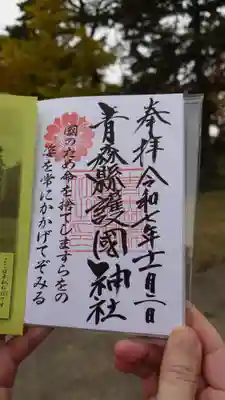 奉拝 令和七年十一月二日
青森縣護國神社
國のため命を捨てしますらをの
姿を常にかかげてぞみる